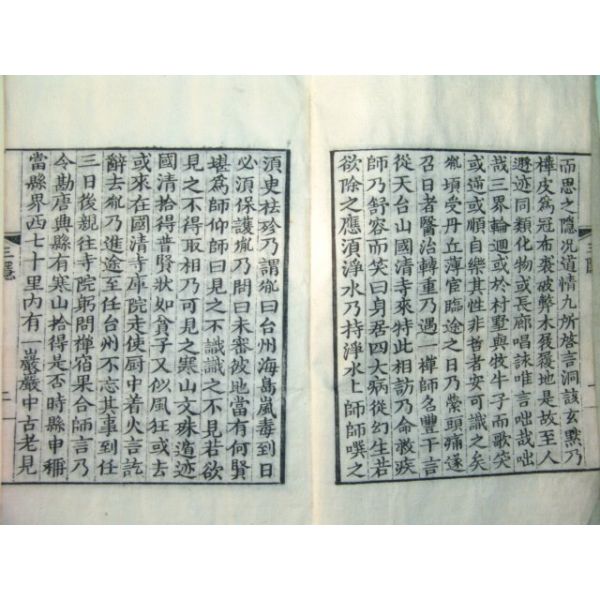 而思之隱況道情凡所啓言洞該玄默乃
樺皮爲冠布裘破弊木屐履地是故至人
遯迹同類化物或長廊唱詠唯言咄哉咄
哉三界輪迴或於村墅與牧牛子而歌笑
或逆或順自樂其性非哲者安可識之矣
胤頃受丹丘薄宦臨途之日乃縈頭痛遂
召日者醫治轉重乃遇一禪師名豐干言
從天台山國清寺來特此相訪乃命救疾
師乃舒容而笑曰身居四大病從幻生若
欲除之應須淨水乃持淨水上師師噀之
須臾祛殄乃謂胤曰台州海島嵐毒到日
必須保護胤乃問曰未審彼地當有何賢
堪爲師仰師曰見之不識識之不見若欲
見之不得取相乃可見之寒山文殊遯迹
國清拾得普賢狀如貧子又似風狂或去
或來在國清寺庫院走使厨中着火言訖
辭去胤乃進途至任台州不忘其事到任
三日後親往寺院躬問禪宿果合師言乃
令勘唐興縣有寒山拾得是否時縣申稱
當縣界西七十里內有一巖巖中古老見
三隱
二